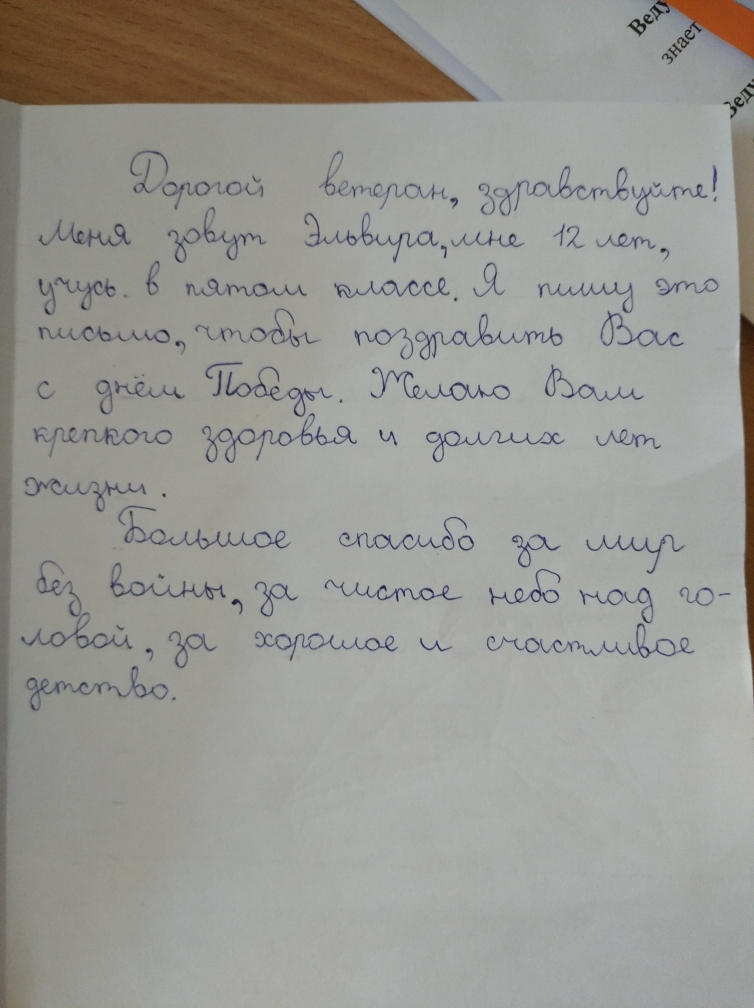 Веду
знает
Веду
Дорогой ветеран, здравствуйте!
Меня зовут Эльвира, мне 12 лет,
учусь. в пятом классе. Я пишу это
письмо, чтобы поздравить Вас
с днём Победы. Желаю Вам
крепкого здоровья и долгих лет
жизни.
Большое спасибо за мир
без войны, за чистое небо над го-
ловой, за хорошое и счастливое
детство.